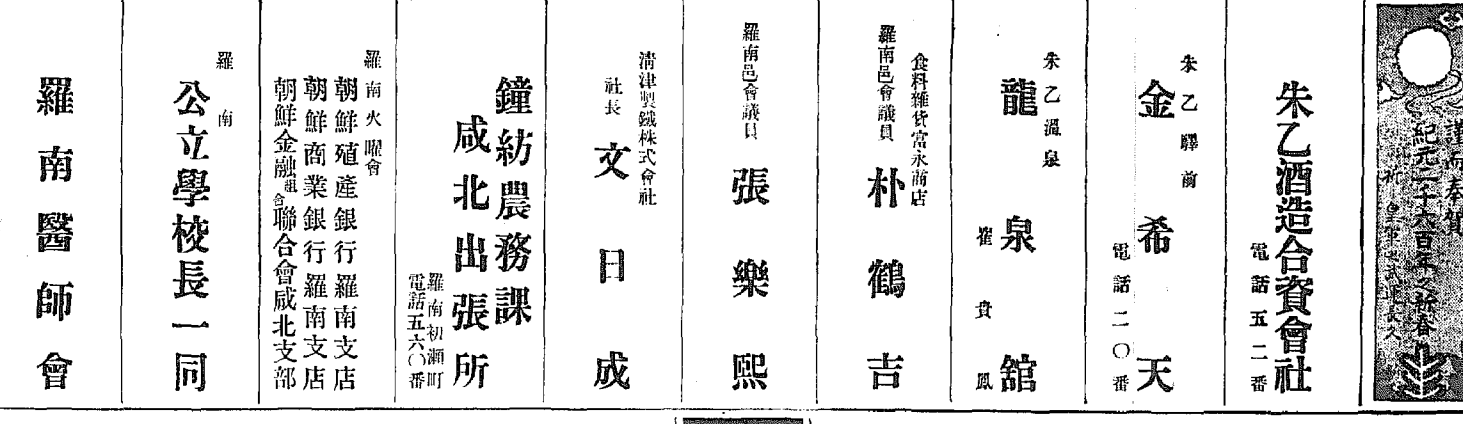 謹而奉賀
紀元二千六百年之新春
祈 皇軍之武運長久
朱乙酒造合資會社
電話五二番
朱乙驛前
金希天
電話二〇番
朱乙溫泉
龍泉舘
崔貴鳳
食料雜貨富永商店
羅南邑會議員 朴鶴吉
羅南邑會議員 張樂熙
淸津製鐵株式會社
社長 文日成
鐘紡農務課
咸北出張所
羅南初瀨町
電話五六〇番
羅南火曜會
朝鮮殖產銀行羅南支店
朝鮮商業銀行羅南支店
朝鮮金融組合聯合會咸北支部
羅南
公立學校長一同
羅南醫師會